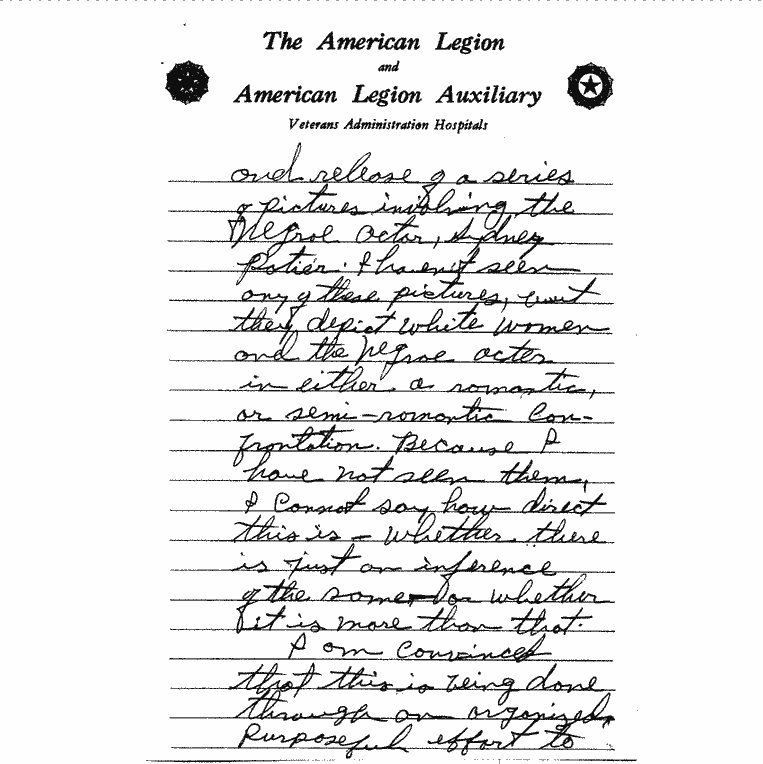 The American Legion
and
American Legion Auxiliary
Veterans Administration Hospitals
and release of a series
of pictures involving the
Negroe actor, Sydney
Potier. I haven't seen
any of these pictures, but
they depict white women
and the Negroe actor
in either a romantic,
or semi-romantic con-
frontation. Because I
have not seen them,
I cannot say how direct
this is - whether there
is just an inference
of the same or whether
it is more than that.
I am convinced
that this is being done
through an organized,
purposeful effort to